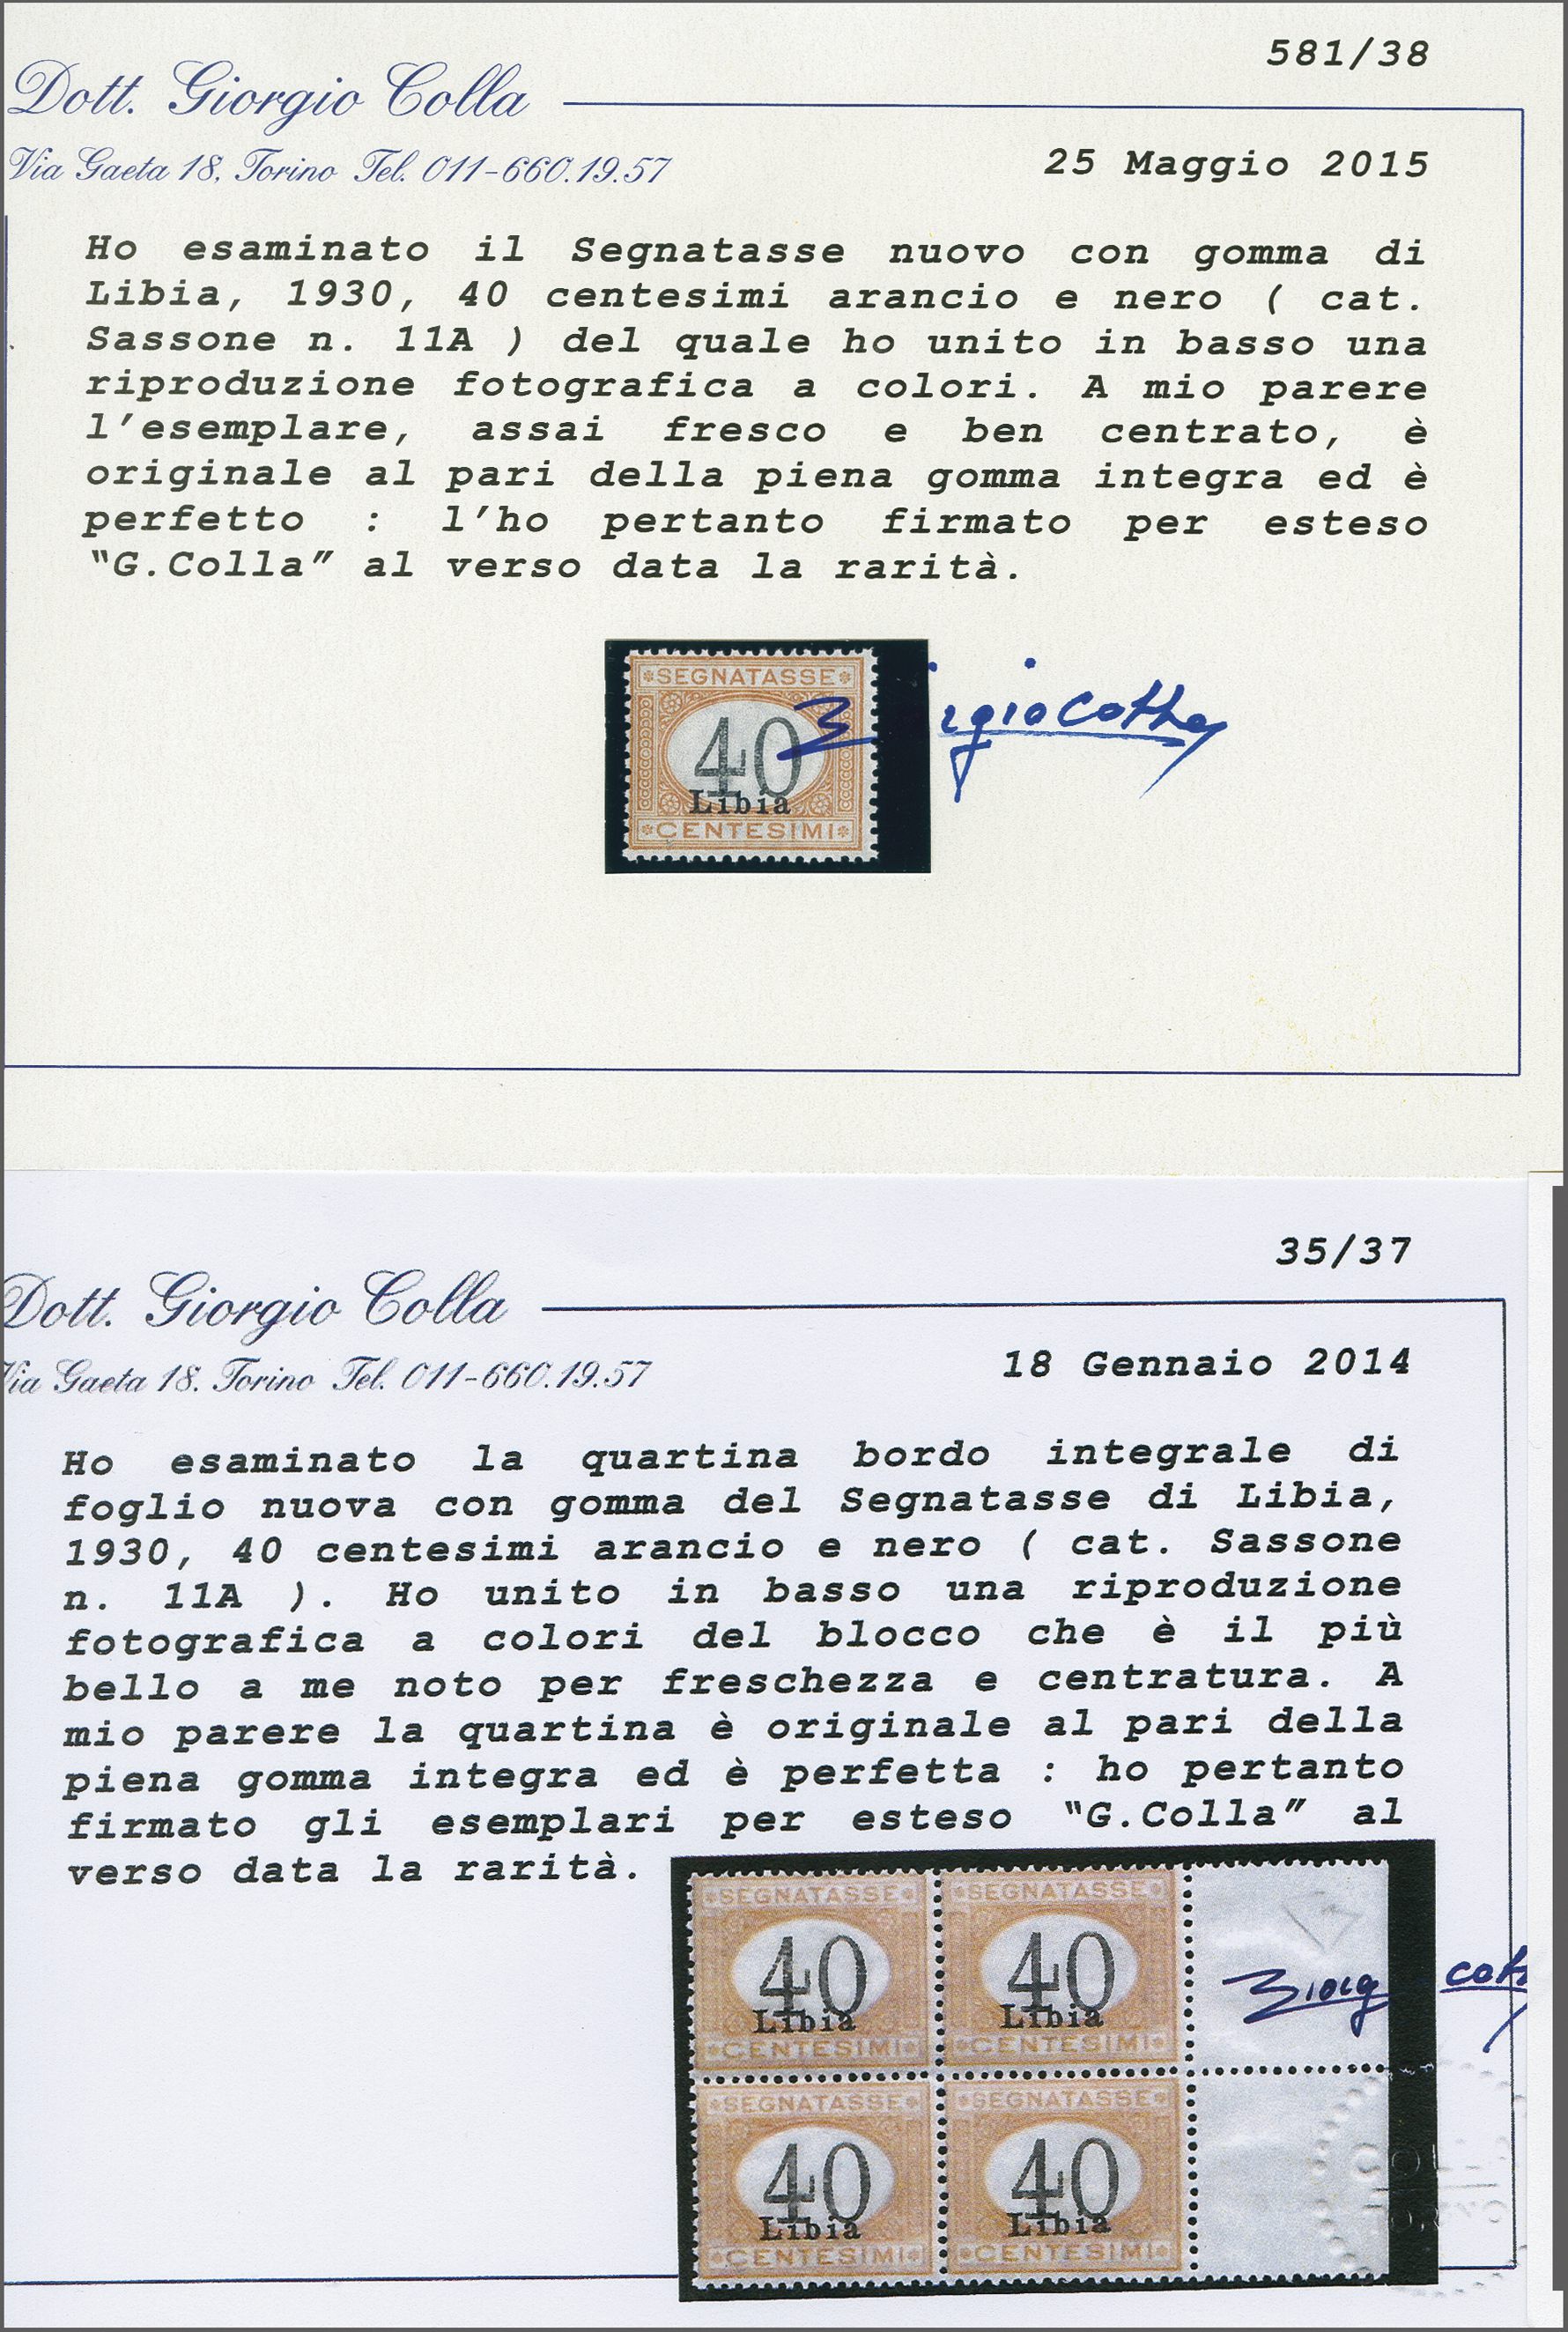 581/38
Dott. Giorgio Colla
Via Gaeta 18, Torino Tel. 011-660.19.57
25 Maggio 2015
Ho esaminato il Segnatasse nuovo con gomma di
Libia, 1930, 40 centesimi arancio e nero ( cat.
Sassone n. 11A ) del quale ho unito in basso una
riproduzione fotografica a colori. A mio parere
l'esemplare, assai fresco e ben centrato, è
originale al pari della piena gomma integra ed è
perfetto : l'ho pertanto firmato per esteso
"G.Colla" al verso data la rarità.
SEGNATASSE
40
Libia
CENTESIMI
35/37
Dott. Giorgio Colla
Via Gaeta 18. Torino Tel. 011-660.19.57
18 Gennaio 2014
Ho esaminato la quartina bordo integrale di
foglio nuova con gomma del Segnatasse di Libia,
1930, 40 centesimi arancio e nero ( cat. Sassone
n. 11A ). Ho unito in basso una riproduzione
fotografica a colori del blocco che è il più
bello a me noto per freschezza e centratura. A
mio parere la quartina è originale al pari della
piena gomma integra ed è perfetta : ho pertanto
firmato gli esemplari per esteso "G.Colla" al
verso data la rarità.
SEGNATASSE SEGNATASSE
40 40
Libia Libia
CENTESIMI CENTESIMI
SEGNATASSE SEGNATASSE
40 40
Libia Libia
CENTESIMI CENTESIMI